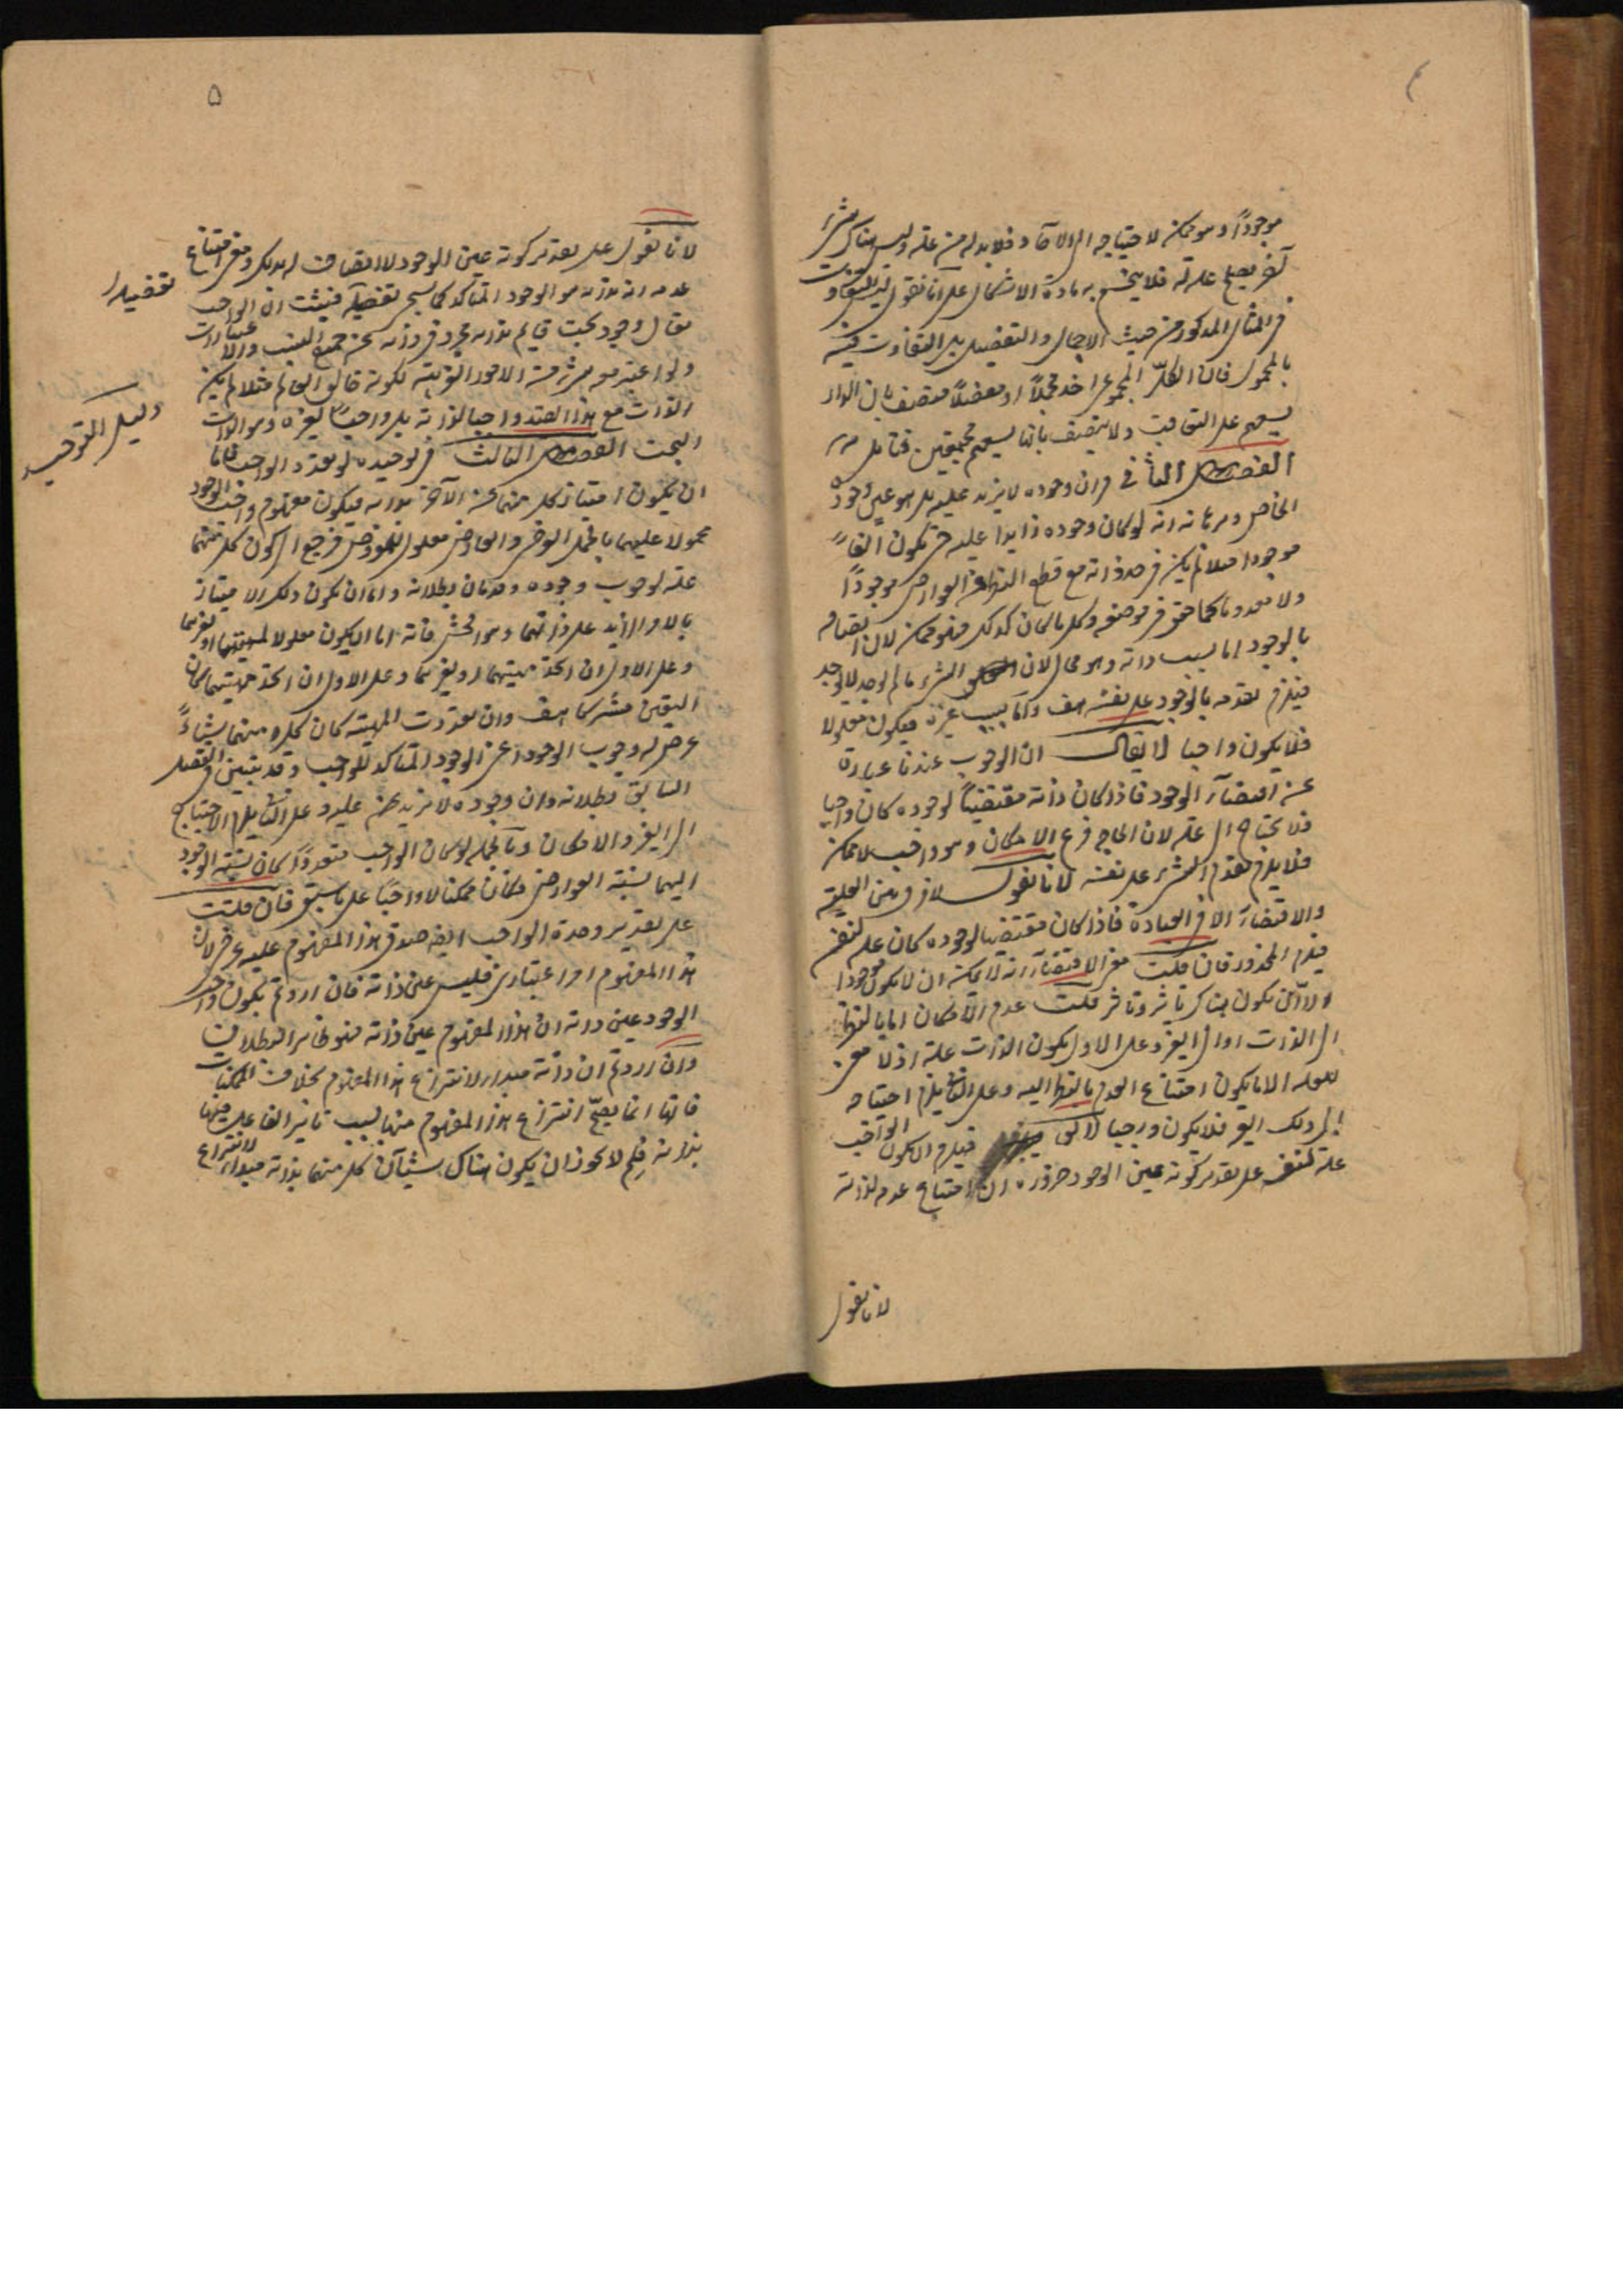 موجوداً وهو ممكن لاحتياجه الى الآحاد فلا بد له من علة وليس هناك شئ
آخر يصلح علة له فلا ينحسم به مادة الاشكال على انا نقول ليس التفاوت
في المثال المذكور من حيث الاجمال والتفصيل بل التفاوت فيه
بالمحمول فان الكل المجموعى اخذ مجملاً او مفصلاً متصف بان الدار
يسعهم على التعاقب ولا يتصف بانها يسعهم مجتمعين فتأمل
الفصل الثانى في ان وجوده لا يزيد عليه بل هو عين وجوده
الخاص وبرهانه انه لو كان وجوده زايدا عليه حتى يكون الفاً
موجودا مثلا لم يكن في حد ذاته مع قطع النظر عن العوارض موجوداً
ولا معدوما كما حقق في موضعه وكل ما كان كذلك فهو ممكن لان اتصافه
بالوجود اما بسبب ذاته وهو محال لان الشئ ما لم يوجد لا يوجد
فيلزم تقدمه بالوجود على نفسه هف واما بسبب غيره فيكون معلولا
فلا يكون واجبا لا يقال ان الوجوب عندنا عبارة
عن اقتضاء الوجود فاذا كان ذاته مقتضياً لوجوده كان واجبا
فلا يحتاج الى علة لان الحاجة فرع الامكان وهو واجب لا ممكن
فلا يلزم تقدم الشئ على نفسه لانا نقول لا فرق بين العلية
والاقتضاء الا في العبارة فاذا كان مقتضيا لوجوده كان علة لنفسه
فيلزم المحذور فان قلت معنى الاقتضاء انه لا يمكن ان لا يكون موجودا
لا ان يكون هناك تأثير وتأثر قلت عدم الامكان اما بالنظر
الى الذات او الى الغير وعلى الاول يكون الذات علة اذ لا معنى
للعلة الا ما يكون امتناع العدم بالنظر اليه وعلى الثانى يلزم احتياجه
الى ذلك الغير فلا يكون واجبا لا يقال فيلزم ان يكون الواجب
علة لنفسه على تقدير كونه عين الوجود ضرورة ان امتناع عدمه لذاته
لانا نقول
لانا نقول على تقدير كونه عين الوجود لا اتصاف له بذلك ومعنى امتناع
عدمه انه بذاته هو الوجود المتأكد كما سيجئ تفصيله فيثبت ان الواجب
تعالى وجود بحت قايم بذاته مجرد في ذاته عن جميع النسب والاعتبارات
ولو اعتبر معه شئ من الامور الغريبة ككونه خالق العالم مثلا لم يكن
الذات مع هذا القيد واجبا لذاته بل واجباً لغيره وهو الذات
البحت الفصل الثالث في توحيده لو تعدد الواجب فاما
ان يكون امتياز كل منهما عن الآخر بذاته فيكون مفهوم واجب الوجود
محمولا عليهما بالحمل العرضى والعارض معلول للمعروض فرجع الى كون كل منهما
علة لوجوب وجوده وقد بان بطلانه واما ان يكون ذلك الامتياز
بالامر الزايد على ذاتهما وهو افحش فانه اما ان يكون معلولا لمهيتهما او لغيرهما
وعلى الاول ان اتحد مهيتهما وعلى الاول ان اتحد مهيتهما كان
التعين مشتركا هف وان تعددت المهية كان كل منهما شيئاً
عرض له وجوب الوجود اعنى الوجود المتأكد للواجب وقد تبين في الفصل
السابق بطلانه وان وجوده لا يزيد عليه وعلى الثانى يلزم الاحتياج
الى الغير والامكان وبالجملة لو كان الواجب متعدداً كان نسبة الوجود
اليهما نسبة العوارض فكان ممكنا لا واجباً على ما سبق فان قلت
على تقدير وحدة الواجب ايضا صدق هذا المفهوم عليه عرضى لان
هذا المفهوم امر اعتبارى فليس عين ذاته فان اردتم بكون واجب
الوجود عين ذاته ان هذا المفهوم عين ذاته فهو ظاهر البطلان
وان اردتم ان ذاته مبدأ لانتزاع هذا المفهوم بخلاف الممكنات
فانها انما يصح انتزاع هذا المفهوم منها بسبب تاثير الفاعل فيها
بذاته فلم لا يجوز ان يكون هناك شيئان كل منهما بذاته مبدأ لانتزاع
تفصيله
دليل التوحيد
٤
٥